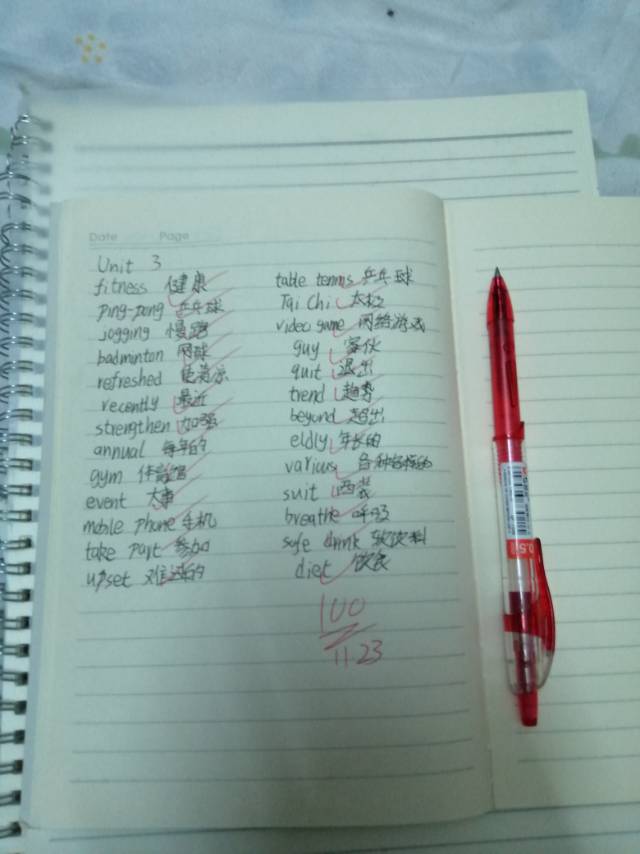 Date Page
Unit 3
fitness 健康
ping-pong 乒乓球
jogging 慢跑
badminton 网球
refreshed
recently 最近
strengthen 加强
annual 每年的
gym 体育馆
event 大事
mobile phone 手机
take part 参加
upset 难过的
table tennis 乒乓球
Tai Chi 太极
video game 网络游戏
guy 家伙
quit 退出
trend 趋势
beyond 超出
eldly 年长的
various 各种各样的
suit 西装
breathe 呼吸
sofe drink 软饮料
diet 饮食
100
11.23
0.5